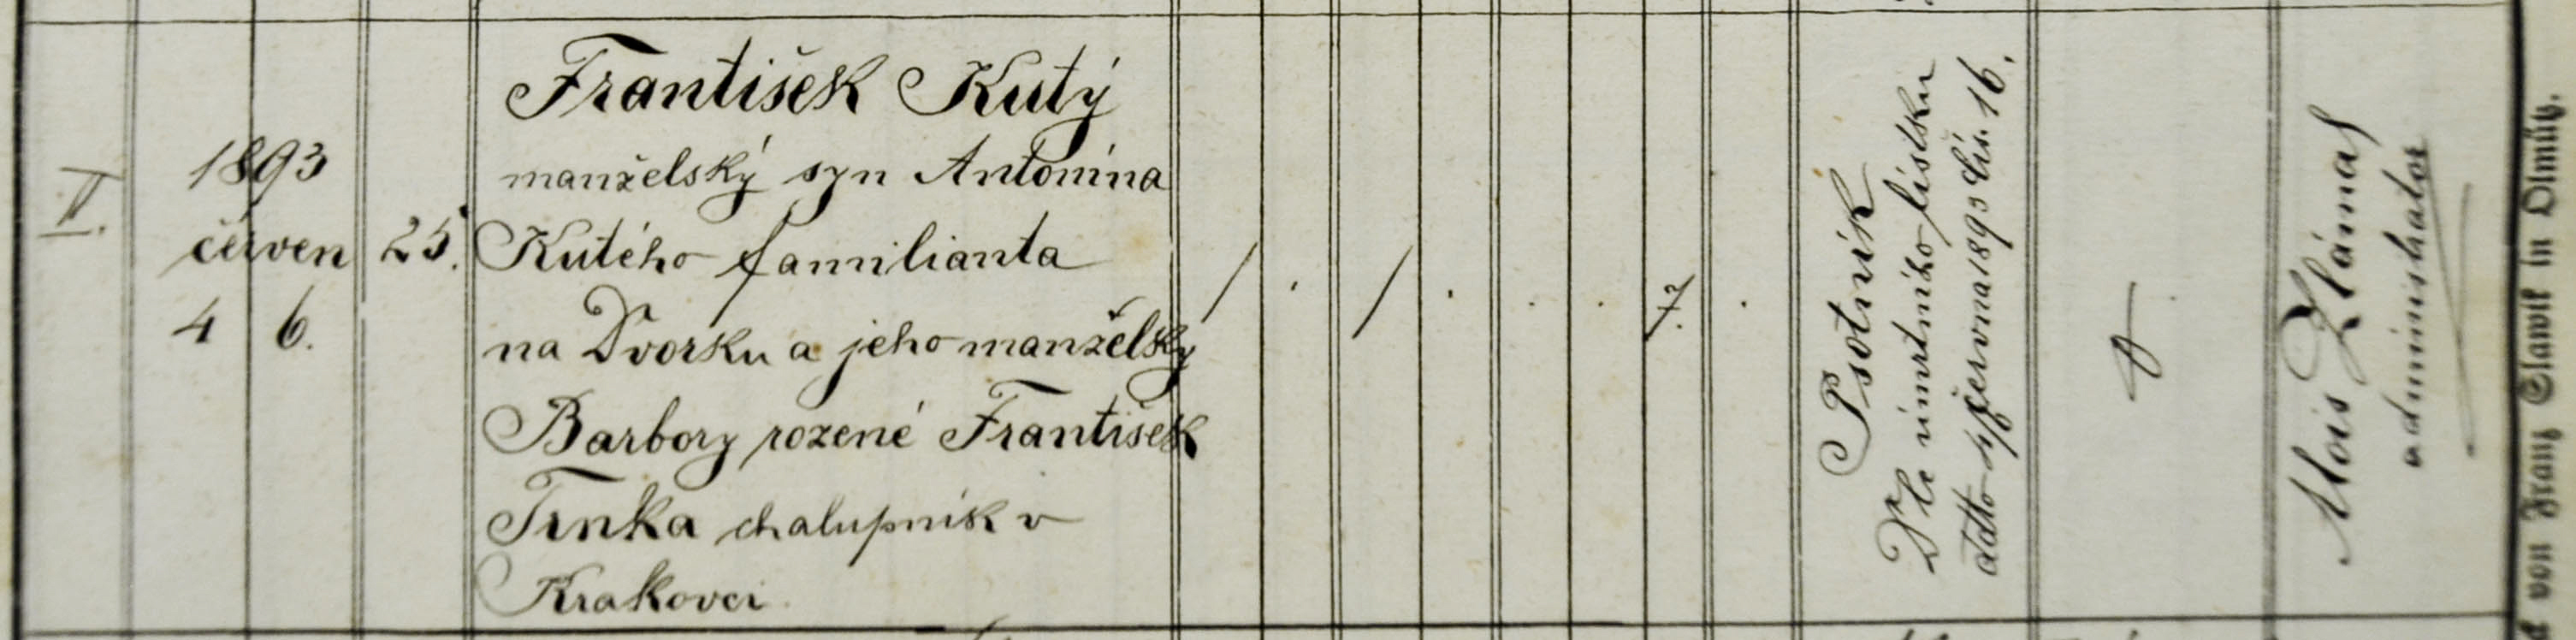 II.
1893
červen
4 6.
25.
František Kutý
manželský syn Antonína
Kutého familianta
na Dvorku a jeho manželky
Barbory rozené František
Trnka chalupník v
Krakovci
/ . / . . . 7. .
Psotník
Dle úmrtního lístku
ddtto 4/ června 1893 Čís. 16.
Alois Zlámal
administrator
von Franz Slawik in Olmütz.